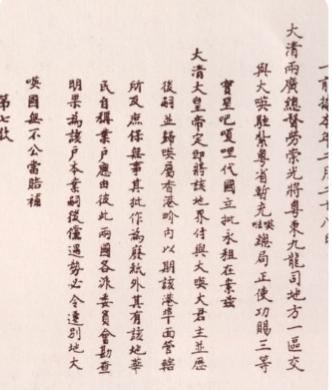 大清兩廣總督勞崇光將粵東九龍司地方一區交
與大𠸄駐紮粵省暫充總局正使功賜三等
寶星吧嗄哩代國立批永租在案茲
大清大皇帝定即將該地界付與大𠸄大君主並歷
後嗣並歸𠸄屬香港界內以期該港埠面管轄
所及庶保無事其批作為廢紙外其有該地華
民自稱業戶應由彼此兩國各派委員會勘查
明果為該戶本業嗣後倘遇勢必令遷別地大
𠸄國無不公當賠補
第七款